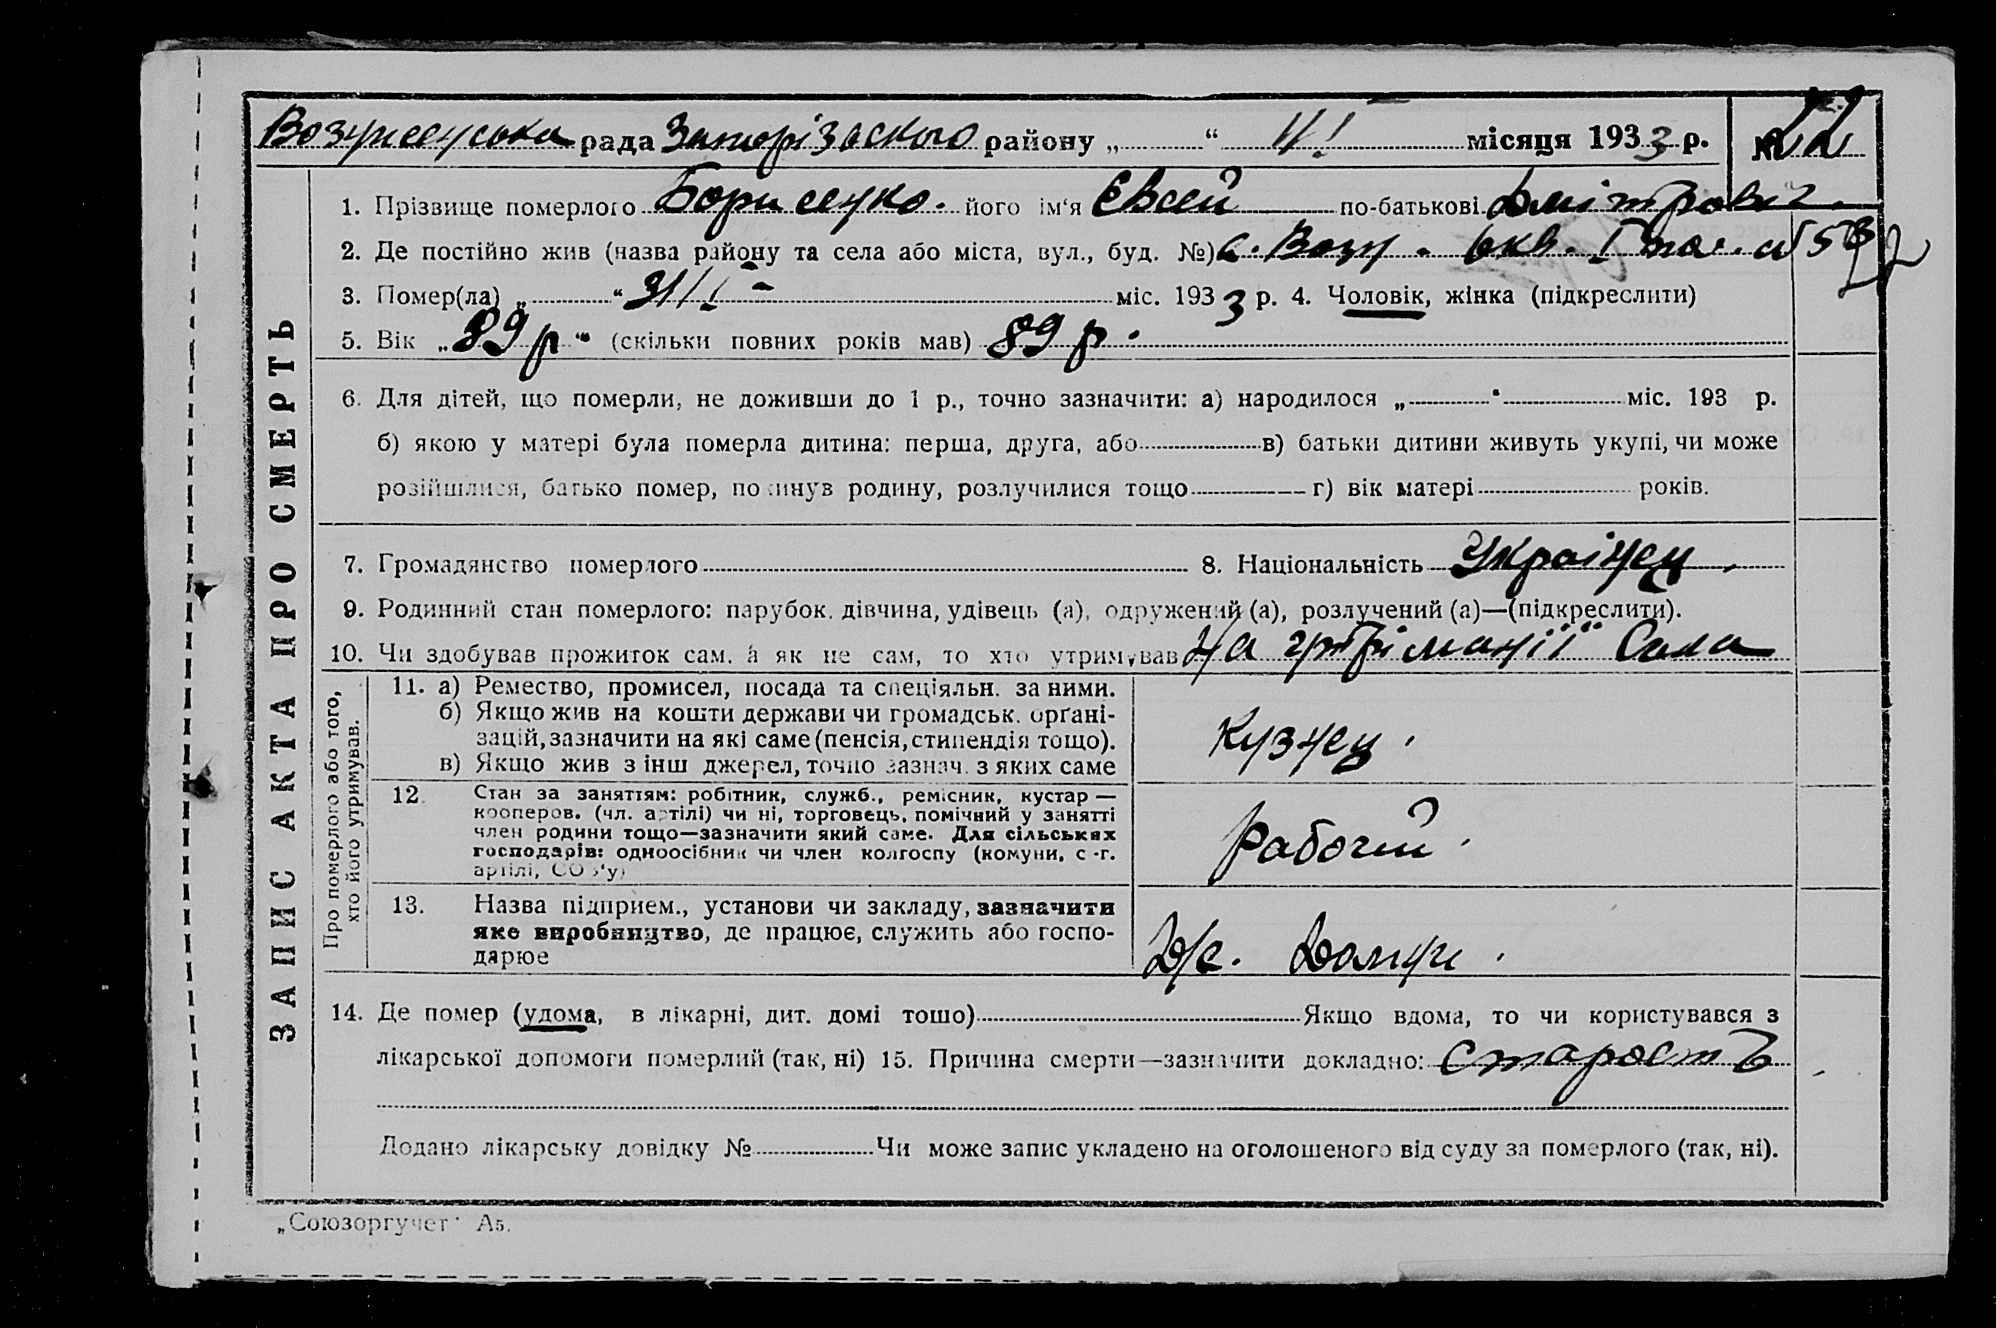 Вознесенська рада Запорізського району „ “ 4/I місяця 1933 р. № 22
1. Прізвище померлого Борисенко. його ім‘я Євсей по-батькові Дмітрович.
2. Де постійно жив (назва району та села або міста, вул., буд. №) с. Возн. 6 кв.
3. Помер(ла) „ “ 3/I - міс. 1933 р. 4. Чоловік, жінка (підкреслити)
5. Вік „89 р“ (скільки повних років мав) 89 р.
6. Для дітей, що померли, не доживши до 1 р., точно зазначити: а) народилося „ “ міс. 193 р.
б) якою у матері була померла дитина: перша, друга, або в) батьки дитини живуть укупі, чи може
розійшлися, батько помер, покинув родину, розлучилися тощо г) вік матері років.
7. Громадянство померлого 8. Національність Українец.
9. Родинний стан померлого: парубок, дівчина, удівець (а), одружений (а), розлучений (а)—(підкреслити).
10. Чи здобував прожиток сам, а як не сам, то хто утримував На утріманії Сина
ЗАПИС АКТА ПРО СМЕРТЬ
Про померлого або того,
хто його утримував.
11. а) Ремество, промисел, посада та спеціяльн. за ними.
б) Якщо жив на кошти держави чи громадськ. орґані-
зацій, зазначити на які саме (пенсія, стипендія тощо).
в) Якщо жив з інш джерел, точно зазнач. з яких саме
Кузнец.
12. Стан за заняттям: робітник, служб., ремісник, кустар —
кооперов. (чл. артілі) чи ні, торговець, помічний у занятті
член родини тощо—зазначити який саме. Для сільських
господарів: одноосібник чи член колгоспу (комуни, с-г.
артілі, СОЗ'у)
Рабочий.
13. Назва підприєм., установи чи закладу, зазначити
яке виробництво, де працює, служить або госпо-
дарює
14. Де помер (удома, в лікарні, дит. домі тощо) Якщо вдома, то чи користувався з
лікарської допомоги померлий (так, ні) 15. Причина смерти—зазначити докладно: Старость
Додано лікарську довідку № Чи може запис укладено на оголошеного від суду за померлого (так, ні).
„Союзоргучет“ А5.